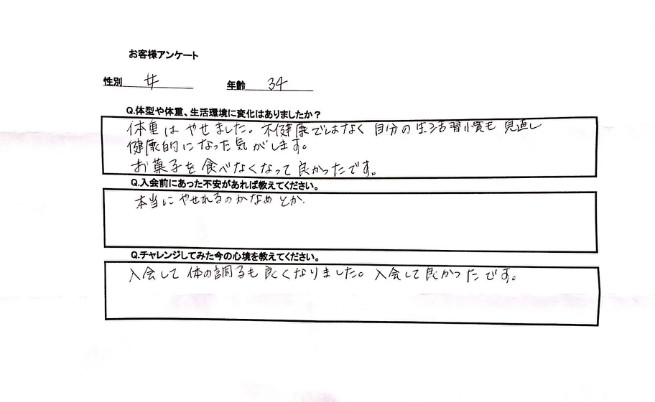 お客様アンケート
性別 女 年齢 34
Q.体型や体重、生活環境に変化はありましたか?
体重は やせました。不健康ではなく 自分の生活習慣も 見直し
健康的になった気がします。
お菓子を食べなくなって良かったです。
Q.入会前にあった不安があれば教えてください。
本当に やせれるのかなぁ とか
Q.チャレンジしてみた今の心境を教えてください。
入会して 体の調子も良くなりました。入会して良かったです。